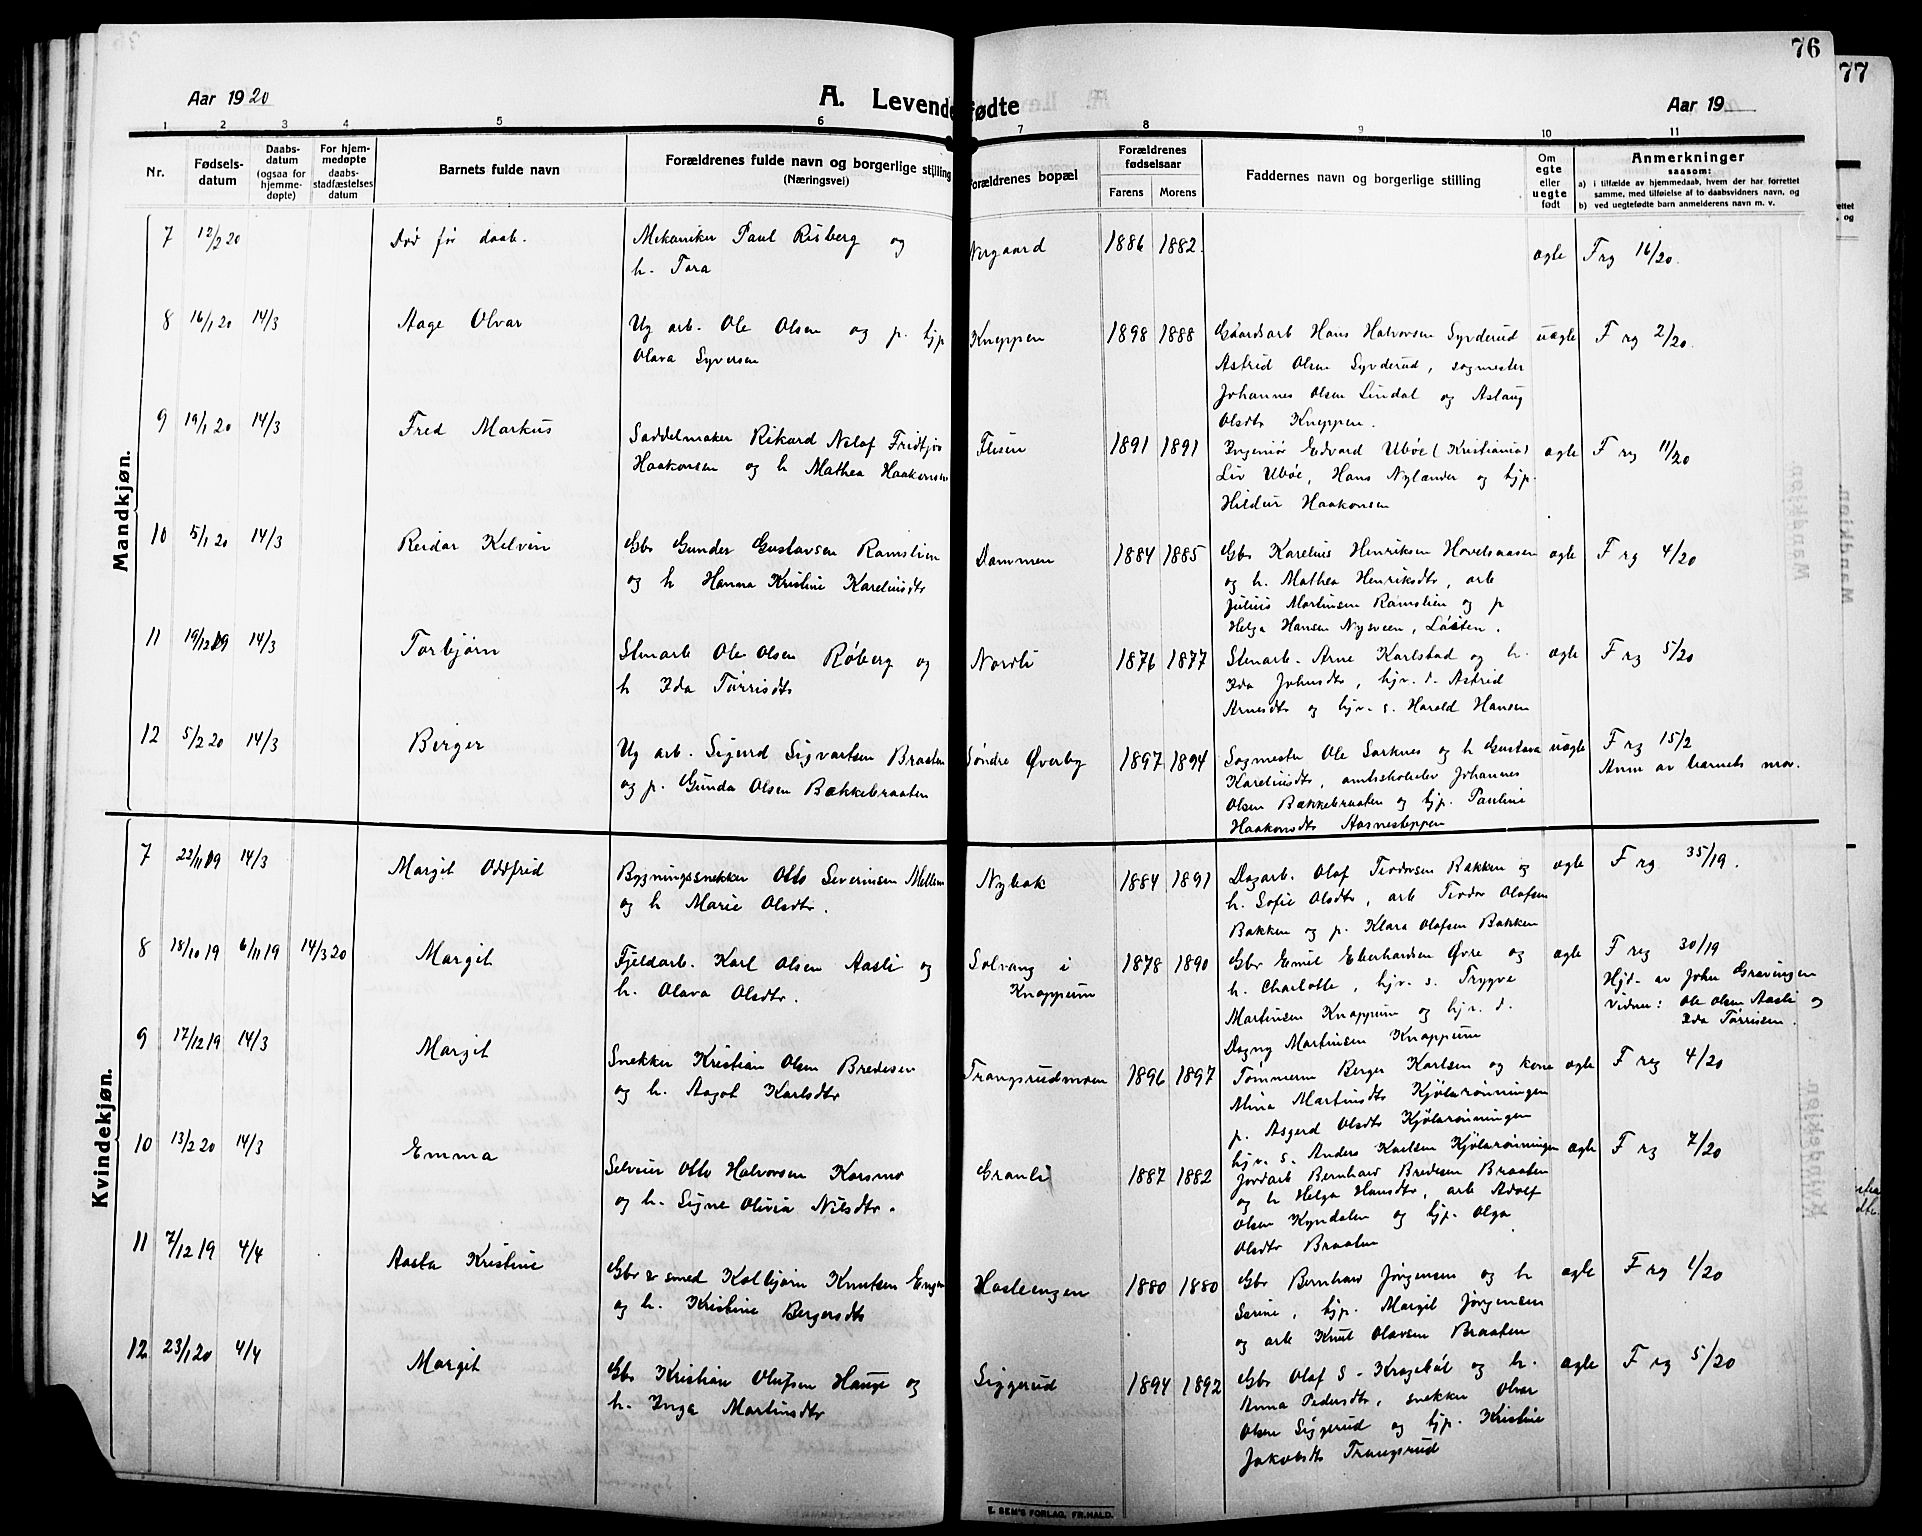 76
77
Aar 1920
A. Levendefødte
Aar 19
1 2 3 4 5 6 7 8 9 10 11
Nr.
Fødsels-
datum
Daabs-
datum
(ogsaa for
hjemme-
døpte)
For hjem-
medøpte
daabs-
stadfæstelses
datum
Barnets fulde navn
Forældrenes fulde navn og borgerlige stilling
(Næringsvei)
Forældrenes bopæl
Forældrenes
fødselsaar
Farens Morens
Faddernes navn og borgerlige stilling
Om
egte
eller
uegte
født
Anmerkninger
saasom:
a) i tilfælde av hjemmedaab, hvem der har forrettet
samme, med tilføielse af to daabsvidners navn, og
b) ved uegtefødte barn anmelderens navn m. v.
Mandkjøn.
7 12/2 20 Død før daab. Mekaniker Paul Risberg og Norgaard 1886 1882 ægte F rg 16/20.
h. Tora
8 16/1 20 14/3 Aage Olvar Ug arb. Ole Olsen og p. hjp Kneppen 1898 1888 Gaardsarb Hans Halvorsen Syvderud uægte F rg 2/20.
Olava Syversen Astrid Olsen Syvderud, sagmester
Johannes Olsen Lindal og Aslaug
Olsdtr Kneppen.
9 19/1 20 14/3 Fred Markus Saddelmaker Rikard Nelof Fridtjov Flisen 1891 1891 Ingeniør Edvard Ubøe (Kristiania) ægte F rg 11/20
Haakonsen og h Mathea Haakonsen Liv Ubøe, Hans Nylænder og hjp.
Hildur Haakonsen
10 5/1 20 14/3 Reidar Kelvin Gbr Gunder Gustavsen Ramslien Dammen 1884 1885 Gbr Karelius Henriksen Hovelsaasen ægte F rg 4/20
og h Hanna Kristine Kareliusdtr og h. Mathea Henriksdtr, arb
Julius Martinsen Ramslien og p
Helga Hansen Nysveen, Løiten.
11 19/12 19 14/3 Torbjørn Stenarb Ole Olsen Røberg og Nordli 1876 1877 Stenarb. Arne Karlstad og h. ægte F rg 5/20
h Ida Torrisdtr Ida Johnsdtr, hjv. d. Astrid
Arnesdtr og hjv. s. Harald Hansen
12 5/2 20 14/3 Berger Ug arb. Sigurd Sigvartsen Braaten Søndre Øverby 1897 1894 Sagmester Ole Sorknes og h Gustava uægte F rg 15/2
og p. Gunda Olsen Bækkebraaten Kareliusdtr, amtsskoleelev Johannes Anm av barnets mor.
Olsen Bækkebraaten og hjp. Pauline
Haakonsdtr Aasnesteppen
Kvindekjøn.
7 22/11 19 14/3 Margit Oddfrid Bygningssnekker Otto Severinsen Mellem Nybak 1884 1891 Dagarb. Olaf Teodorsen Bakken og ægte F rg 35/19.
og h Marie Olsdtr. h. Sofie Olsdtr, arb Teodor Olafsen
Bakken og p. Klara Olafsen Bakken
8 18/10 19 6/11 19 14/3 20 Margit Fjeldarb. Karl Olsen Aasli og Solvang i 1878 1890 Gbr Emil Eberhardsen Øvre og ægte F reg 30/19
h. Olava Olsdtr. Knappum h. Charlotte, hjv. s. Trygve Hjd. av John Gravingen
Martinsen Knappum og hjv. d. Vidner: Ole Olsen Aasli og
Dagny Martinsen Knappum Ida Torrisen.
9 17/12 19 14/3 Margit Snekker Kristian Olsen Bredesen Trangsrudmoen 1896 1897 Tømmerm Berger Karlsen og kone ægte F reg 4/20
og h. Aagot Karlsdtr Mina Martinsdtr Kjølarønningen
p. Asgerd Olsdtr Kjølarønningen
hjv. s. Anders Karlsen Kjølarønningen
10 13/2 20 14/3 Emma Selveier Otto Halvorsen Korsmo Granli 1887 1882 Jordarb Bernhard Bredesen Braaten ægte F rg 7/20
og h. Signe Olivia Nilsdtr. og h Helga Hansdtr, arb Adolf
Olsen Kyndalen og hjp. Olga
Olsdtr Braaten
11 7/12 19 4/4 Aasta Kristine Gbr & smed Kolbjørn Knutsen Engen Hasleengen 1880 1880 Gbr Bernhard Jørgensen og h ægte F rg 1/20
og h. Kristine Bergersdtr Serine, hjp. Margit Jørgensen
og arb Knut Olavsen Braaten
12 23/1 20 4/4 Margit Gbr Kristian Olufsen Hauge og Siggerud 1894 1892 Gbr Olaf S. Kragebøl og h. ægte F rg 5/20
h. Inga Martinsdtr Anna Pedersdtr, snekker Olvar
Olsen Siggerud og hjp. Kristine
Jakobsdtr Trangsrud
E. SEM'S FORLAG, FR.HALD.